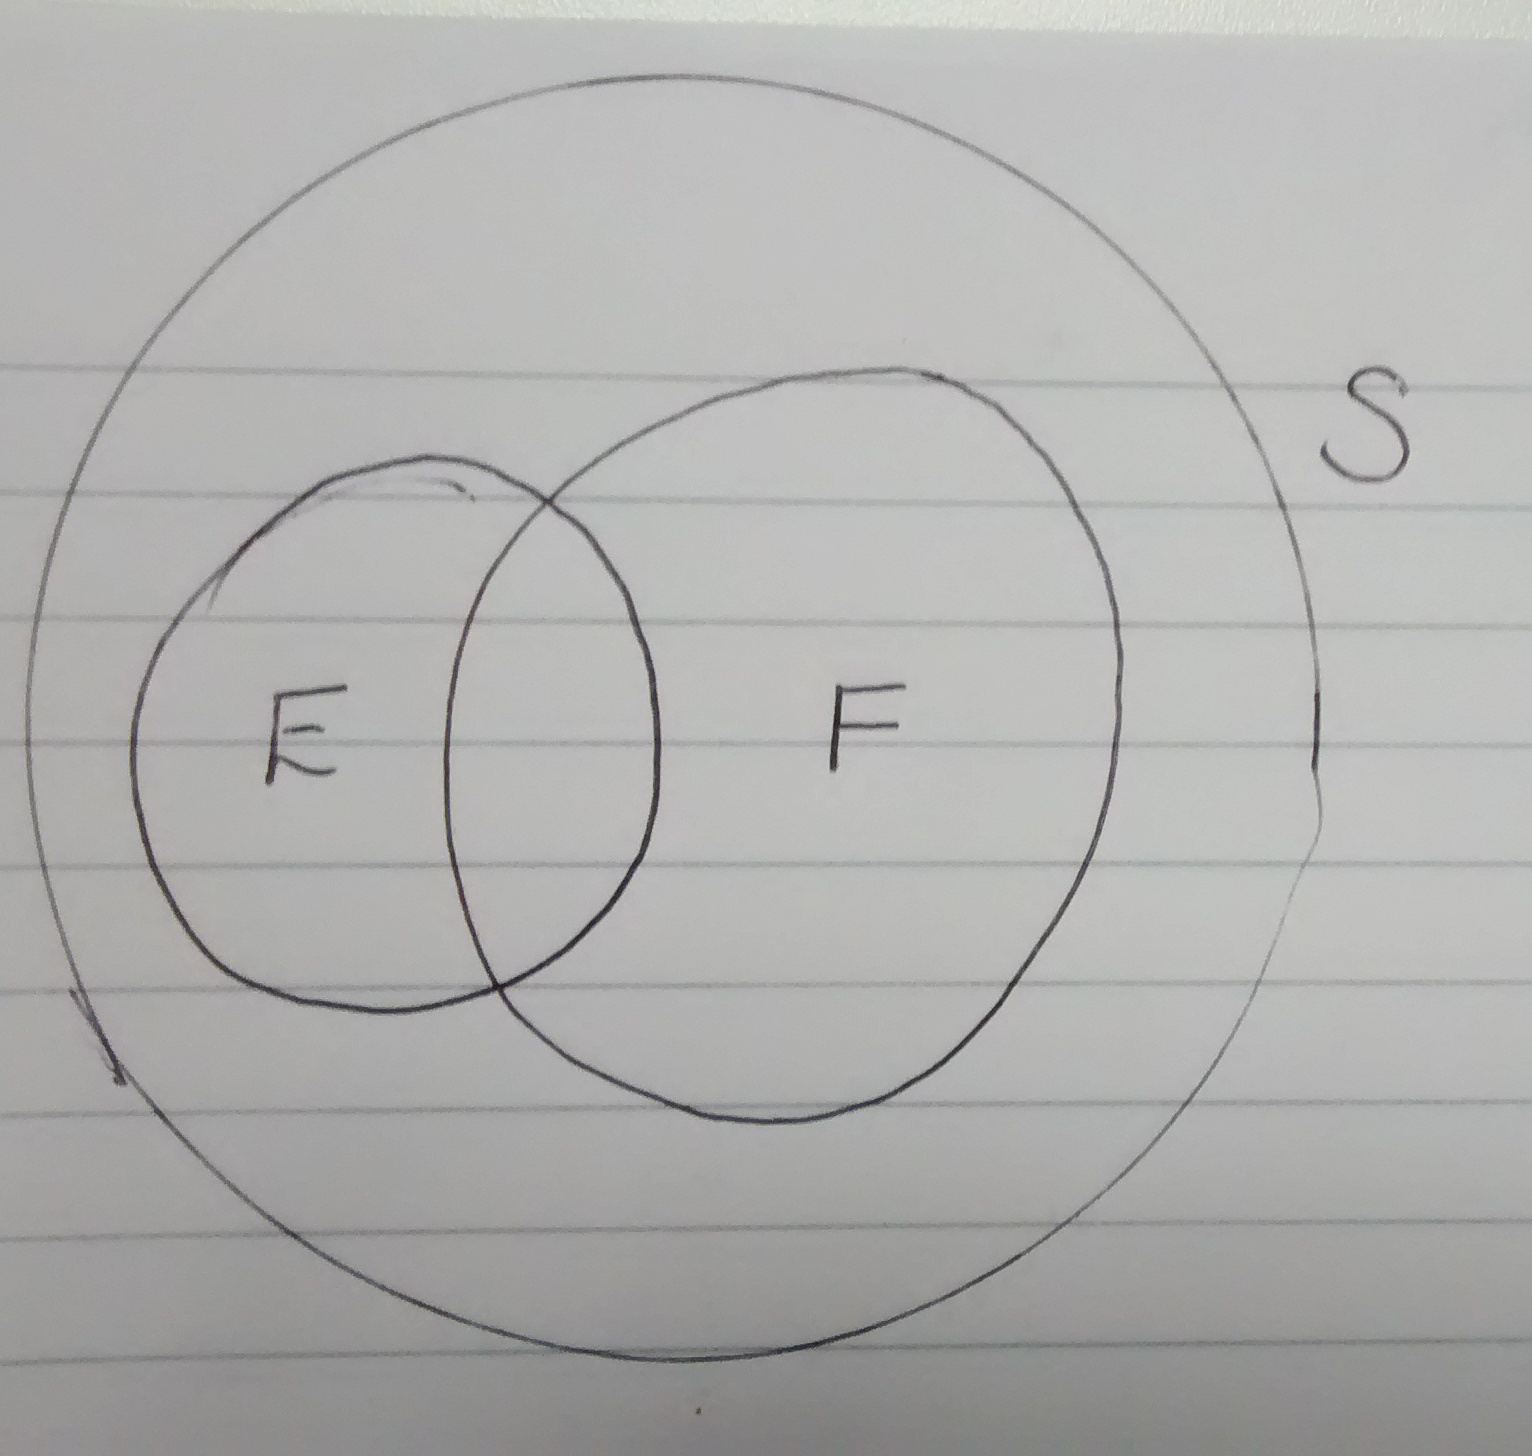 S
E F